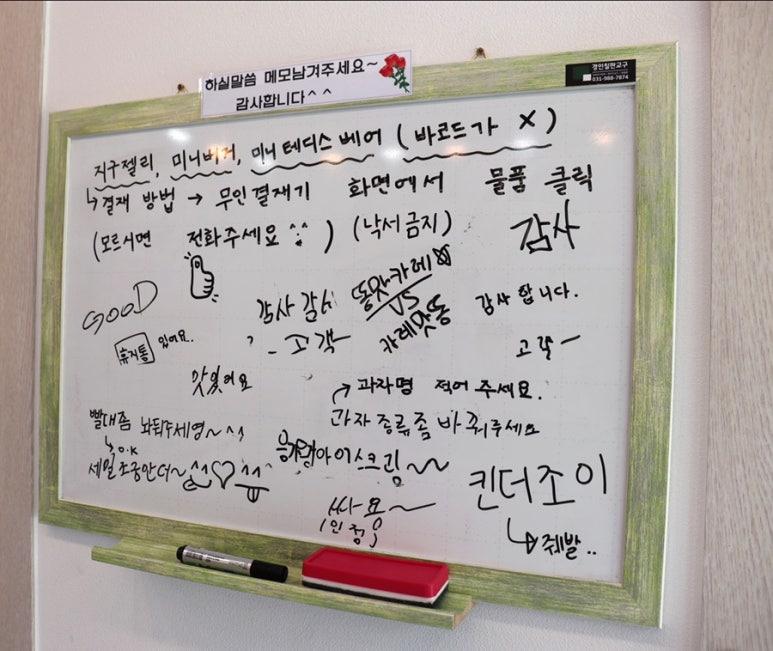 하실말씀 메모남겨주세요~
감사합니다^^
경인칠판교구
031-988-7874
지구젤리, 미니버거, 미니 테디스 베어 (바코드가 X)
↳결재 방법 → 무인결재기 화면에서 물품 클릭
(모르시면 전화주세요 ^^) (낙서금지)
감사
GOOD
감사 감사
똥맛카레
VS
카레맛똥
감사합니다.
휴지통 있어요..
- 고객
고객 -
맛있어요
과자명 적어 주세요.
과자 종류좀 바꿔주세요
빨대좀 놔둬주세영~^^
↳O.K
세일 조공만 더~^^♡
아이스크림~~
킨더조이
↳줴발..
싸요~
(인정)